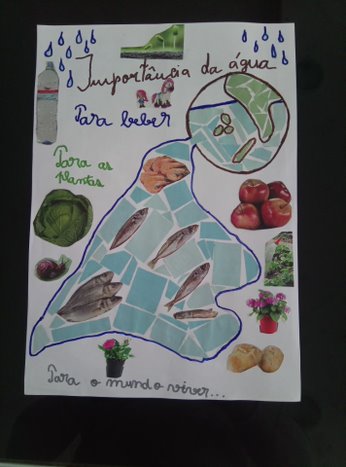 Importância da água
Para beber
Para as
plantas
Para o mundo viver...